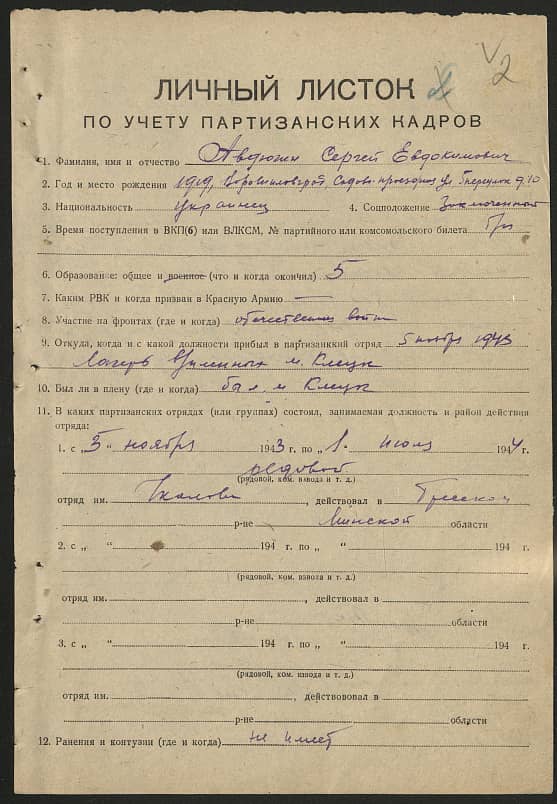 2
ЛИЧНЫЙ ЛИСТОК
ПО УЧЕТУ ПАРТИЗАНСКИХ КАДРОВ
1. Фамилия, имя и отчество Авдюхин Сергей Евдокимович
2. Год и место рождения 1919, Ворошиловград, Садово-проездная ул
3. Национальность украинец 4. Соцположение
5. Время поступления в ВКП(б) или ВЛКСМ, № партийного или комсомольского билета
6. Образование: общее и военное (что и когда окончил) 5
7. Каким РВК и когда призван в Красную Армию —
8. Участие на фронтах (где и когда) отечествен войн
9. Откуда, когда и с какой должности прибыл в партизанский отряд 5 ноября 1943
Лагерь м. Клецк
10. Был ли в плену (где и когда) был м Клецк
11. В каких партизанских отрядах (или группах) состоял, занимаемая должность и район действия
отряда:
1. с „5“ ноября 1943 г. по „1“ июля 1944 г.
рядовой
(рядовой, ком. взвода и т. д.)
отряд им. Чкалова, действовал в Гресском
р-не Минской области
2. с „ “ 194 г. по „ “ 194 г.
(рядовой, ком. взвода и т. д.)
отряд им. , действовал в
р-не области
3. с „ “ 194 г. по „ “ 194 г.
(рядовой, ком. взвода и т. д.)
отряд им. , действововал в
р-не области
12. Ранения и контузии (где и когда) не имеет